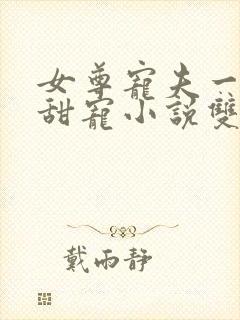 女尊寵夫一
甜寵小說雙
戴雨靜